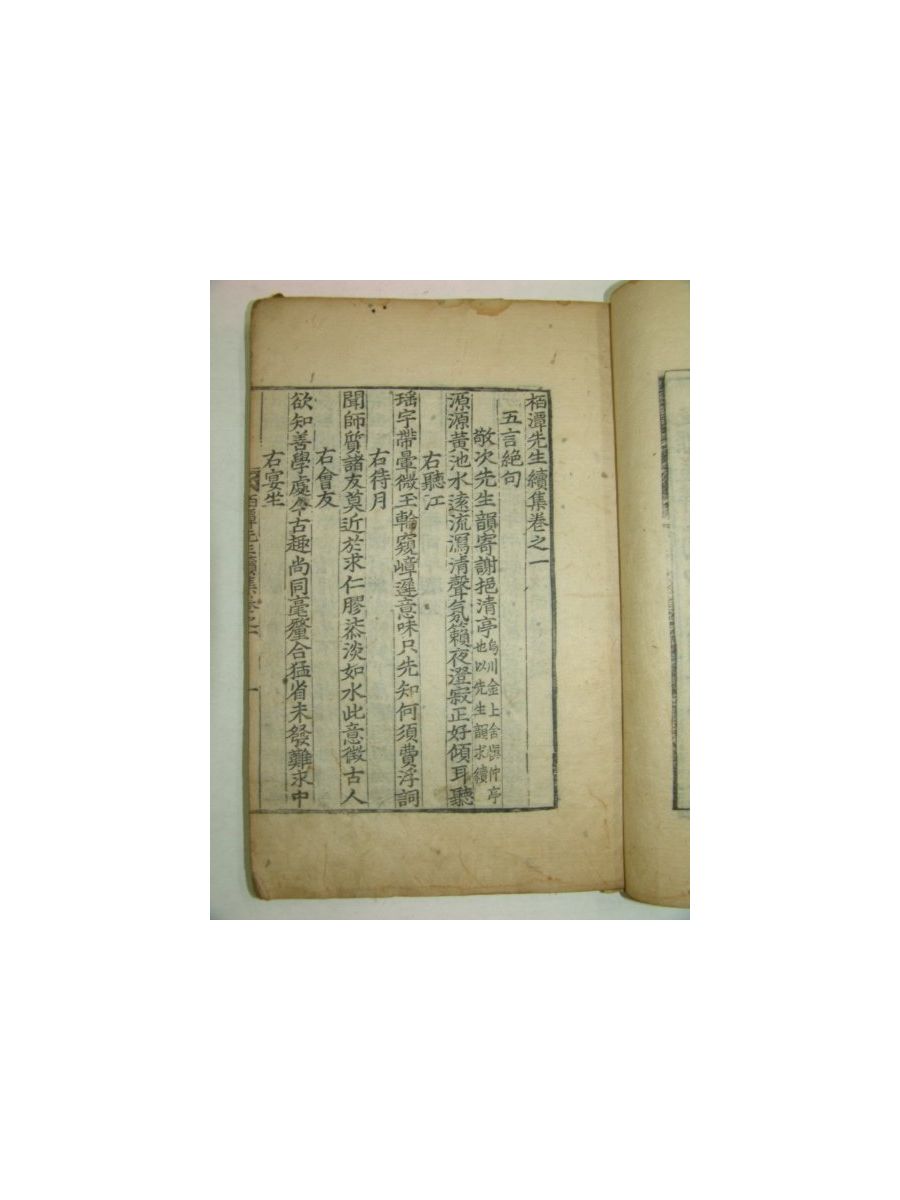 栢潭先生續集卷之一
五言絕句
敬次先生韻寄謝挹清亭烏川金上舍愼仲亭
也以先生韻求續
源源黃池水遠流瀉清聲氛籟夜澄寂正好傾耳聽
右聽江
瑤宇帶暈微玉輪窺嶂遲意味只先知何須費浮詞
右待月
聞師質諸友莫近於求仁膠漆淡如水此意徵古人
右會友
欲知善學處今古趣尚同毫釐合猛省未發難求中
右宴坐
栢潭先生續集卷之一 一